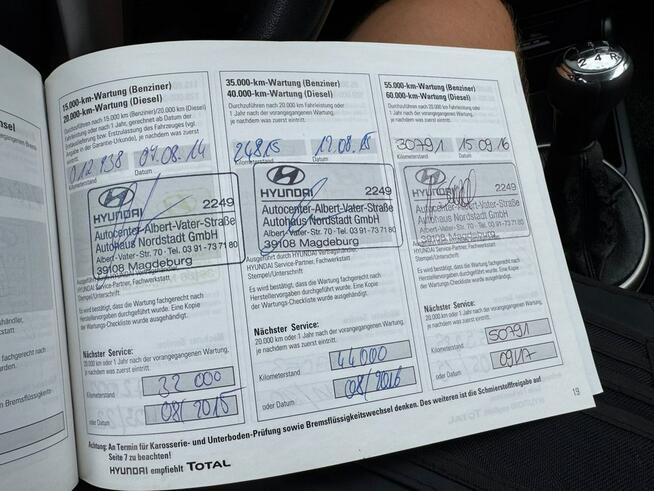 15.000-km-Wartung (Benziner)
20.000-km-Wartung (Diesel)
Durchzuführen nach 15.000 km (Benziner)/20.000 km (Diesel)
oder nach 1 Jahr, gerechnet ab Datum der
Erstauslieferung bzw. Erstzulassung des Fahrzeuges (vgl.
Angabe in der Garantie-Urkunde), je nachdem was zuerst
eintritt.
012.938 04.08.14
Kilometerstand Datum
HYUNDAI 2249
Autocenter-Albert-Vater-Straße
Autohaus Nordstadt GmbH
Albert-Vater-Str. 70 - Tel. 03 91-73 71 80
39108 Magdeburg
HYUNDAI Service-Partner, Fachwerkstatt
Stempel/Unterschrift
Es wird bestätigt, dass die Wartung fachgerecht nach
Herstellervorgaben durchgeführt wurde. Eine Kopie
der Wartungs-Checkliste wurde ausgehändigt.
Nächster Service:
20.000 km oder 1 Jahr nach der vorangegangenen Wartung,
je nachdem was zuerst eintritt.
Kilometerstand 32 000
oder Datum 08/2015
35.000-km-Wartung (Benziner)
40.000-km-Wartung (Diesel)
Durchzuführen nach 20.000 km Fahrleistung oder
1 Jahr nach der vorangegangenen Wartung,
je nachdem was zuerst eintritt.
24815 12.08.15
Kilometerstand Datum
HYUNDAI 2249
Autocenter-Albert-Vater-Straße
Autohaus Nordstadt GmbH
Albert-Vater-Str. 70 - Tel. 03 91-73 71 80
39108 Magdeburg
Ausgeführt durch HYUNDAI Vertragshändler,
HYUNDAI Service-Partner, Fachwerkstatt
Stempel/Unterschrift
Es wird bestätigt, dass die Wartung fachgerecht nach
Herstellervorgaben durchgeführt wurde. Eine Kopie
der Wartungs-Checkliste wurde ausgehändigt.
Nächster Service:
20.000 km oder 1 Jahr nach der vorangegangenen Wartung,
je nachdem was zuerst eintritt.
Kilometerstand 44000
oder Datum 08/2016
55.000-km-Wartung (Benziner)
60.000-km-Wartung (Diesel)
Durchzuführen nach 20.000 km Fahrleistung oder
1 Jahr nach der vorangegangenen Wartung,
je nachdem was zuerst eintritt.
30791 15.09.16
Kilometerstand Datum
HYUNDAI 2249
Autocenter-Albert-Vater-Straße
Autohaus Nordstadt GmbH
Albert-Vater-Str. 70 - Tel. 03 91-73 71 80
39108 Magdeburg
HYUNDAI Service-Partner, Fachwerkstatt
Stempel/Unterschrift
Es wird bestätigt, dass die Wartung fachgerecht nach
Herstellervorgaben durchgeführt wurde. Eine Kopie
der Wartungs-Checkliste wurde ausgehändigt.
Nächster Service:
20.000 km oder 1 Jahr nach der vorangegangenen Wartung,
je nachdem was zuerst eintritt.
Kilometerstand 50791
oder Datum 09/17
Achtung: An Termin für Karosserie- und Unterboden-Prüfung sowie Bremsflüssigkeitswechsel denken. Des weiteren ist die Schmierstofffreigabe auf
Seite 7 zu beachten!
HYUNDAI empfiehlt TOTAL
19
2 4 R